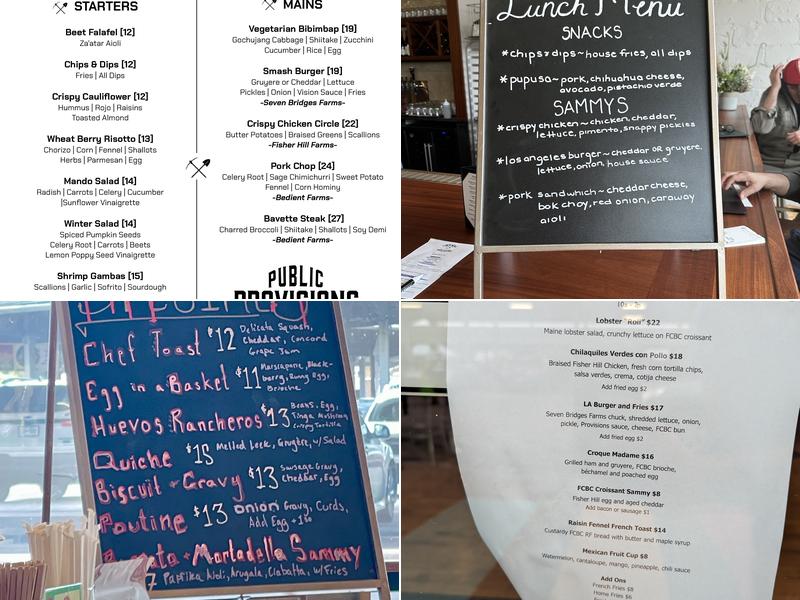 STARTERS
Beet Falafel [12]
Za'atar Aioli
Chips & Dips [12]
Fries | All Dips
Crispy Cauliflower [12]
Hummus | Rojo | Raisins
Toasted Almond
Wheat Berry Risotto [13]
Chorizo | Corn | Fennel | Shallots
Herbs | Parmesan | Egg
Mando Salad [14]
Radish | Carrots | Celery | Cucumber
|Sunflower Vinaigrette
Winter Salad [14]
Spiced Pumpkin Seeds
Celery Root | Carrots | Beets
Lemon Poppy Seed Vinaigrette
Shrimp Gambas [15]
Scallions | Garlic | Sofrito | Sourdough
MAINS
Vegetarian Bibimbap [19]
Gochujang Cabbage | Shiitake | Zucchini
Cucumber | Rice | Egg
Smash Burger [19]
Gruyere or Cheddar | Lettuce
Pickles | Onion | Vision Sauce | Fries
-Seven Bridges Farms-
Crispy Chicken Circle [22]
Butter Potatoes | Braised Greens | Scallions
-Fisher Hill Farms-
Pork Chop [24]
Celery Root | Sage Chimichurri | Sweet Potato
Fennel | Corn Hominy
-Bedient Farms-
Bavette Steak [27]
Charred Broccoli | Shiitake | Shallots | Soy Demi
-Bedient Farms-
PUBLIC
PROVISIONS
Lunch Menu
SNACKS
*chips & dips~house fries, all dips
*pupusa~pork, chihuahua cheese,
avocado, pistachio verde
SAMMYS
*crispy chicken~chicken, cheddar,
lettuce, pimento, snappy pickles
*los angeles burger~cheddar OR gruyere,
lettuce, onion, house sauce
*pork sandwich~cheddar cheese,
bok choy, red onion, caraway
aioli
Chef Toast $12 Delicata Squash,
Cheddar, Concord
Grape Jam
Egg in a Basket $11 Marscapone, Black-
berry, Runny Egg,
Brioche
Huevos Rancheros $13 Beans, Egg,
Tinga Mushroom
Crispy Tortilla
Quiche $15 Melted Leek, Gruyère, w/ Salad
Biscuit + Gravy $13 Sausage Gravy,
Cheddar, Egg
Poutine $13 Onion Gravy, Curds,
Add Egg +1.50
Mortadella Sammy
Paprika Aioli, Arugala, Ciabatta, w/ Fries
Lobster "Roll" $22
Maine lobster salad, crunchy lettuce on FCBC croissant
Chilaquiles Verdes con Pollo $18
Braised Fisher Hill Chicken, fresh corn tortilla chips,
salsa verdes, crema, cotija cheese
Add fried egg $2
LA Burger and Fries $17
Seven Bridges Farms chuck, shredded lettuce, onion,
pickle, Provisions sauce, cheese, FCBC bun
Add fried egg $2
Croque Madame $16
Grilled ham and gruyere, FCBC brioche,
béchamel and poached egg
FCBC Croissant Sammy $8
Fisher Hill egg and aged cheddar
Add bacon or sausage $1
Raisin Fennel French Toast $14
Custardy FCBC RF bread with butter and maple syrup
Mexican Fruit Cup $8
Watermelon, cantaloupe, mango, pineapple, chili sauce
Add Ons
French Fries $8
Home Fries $6